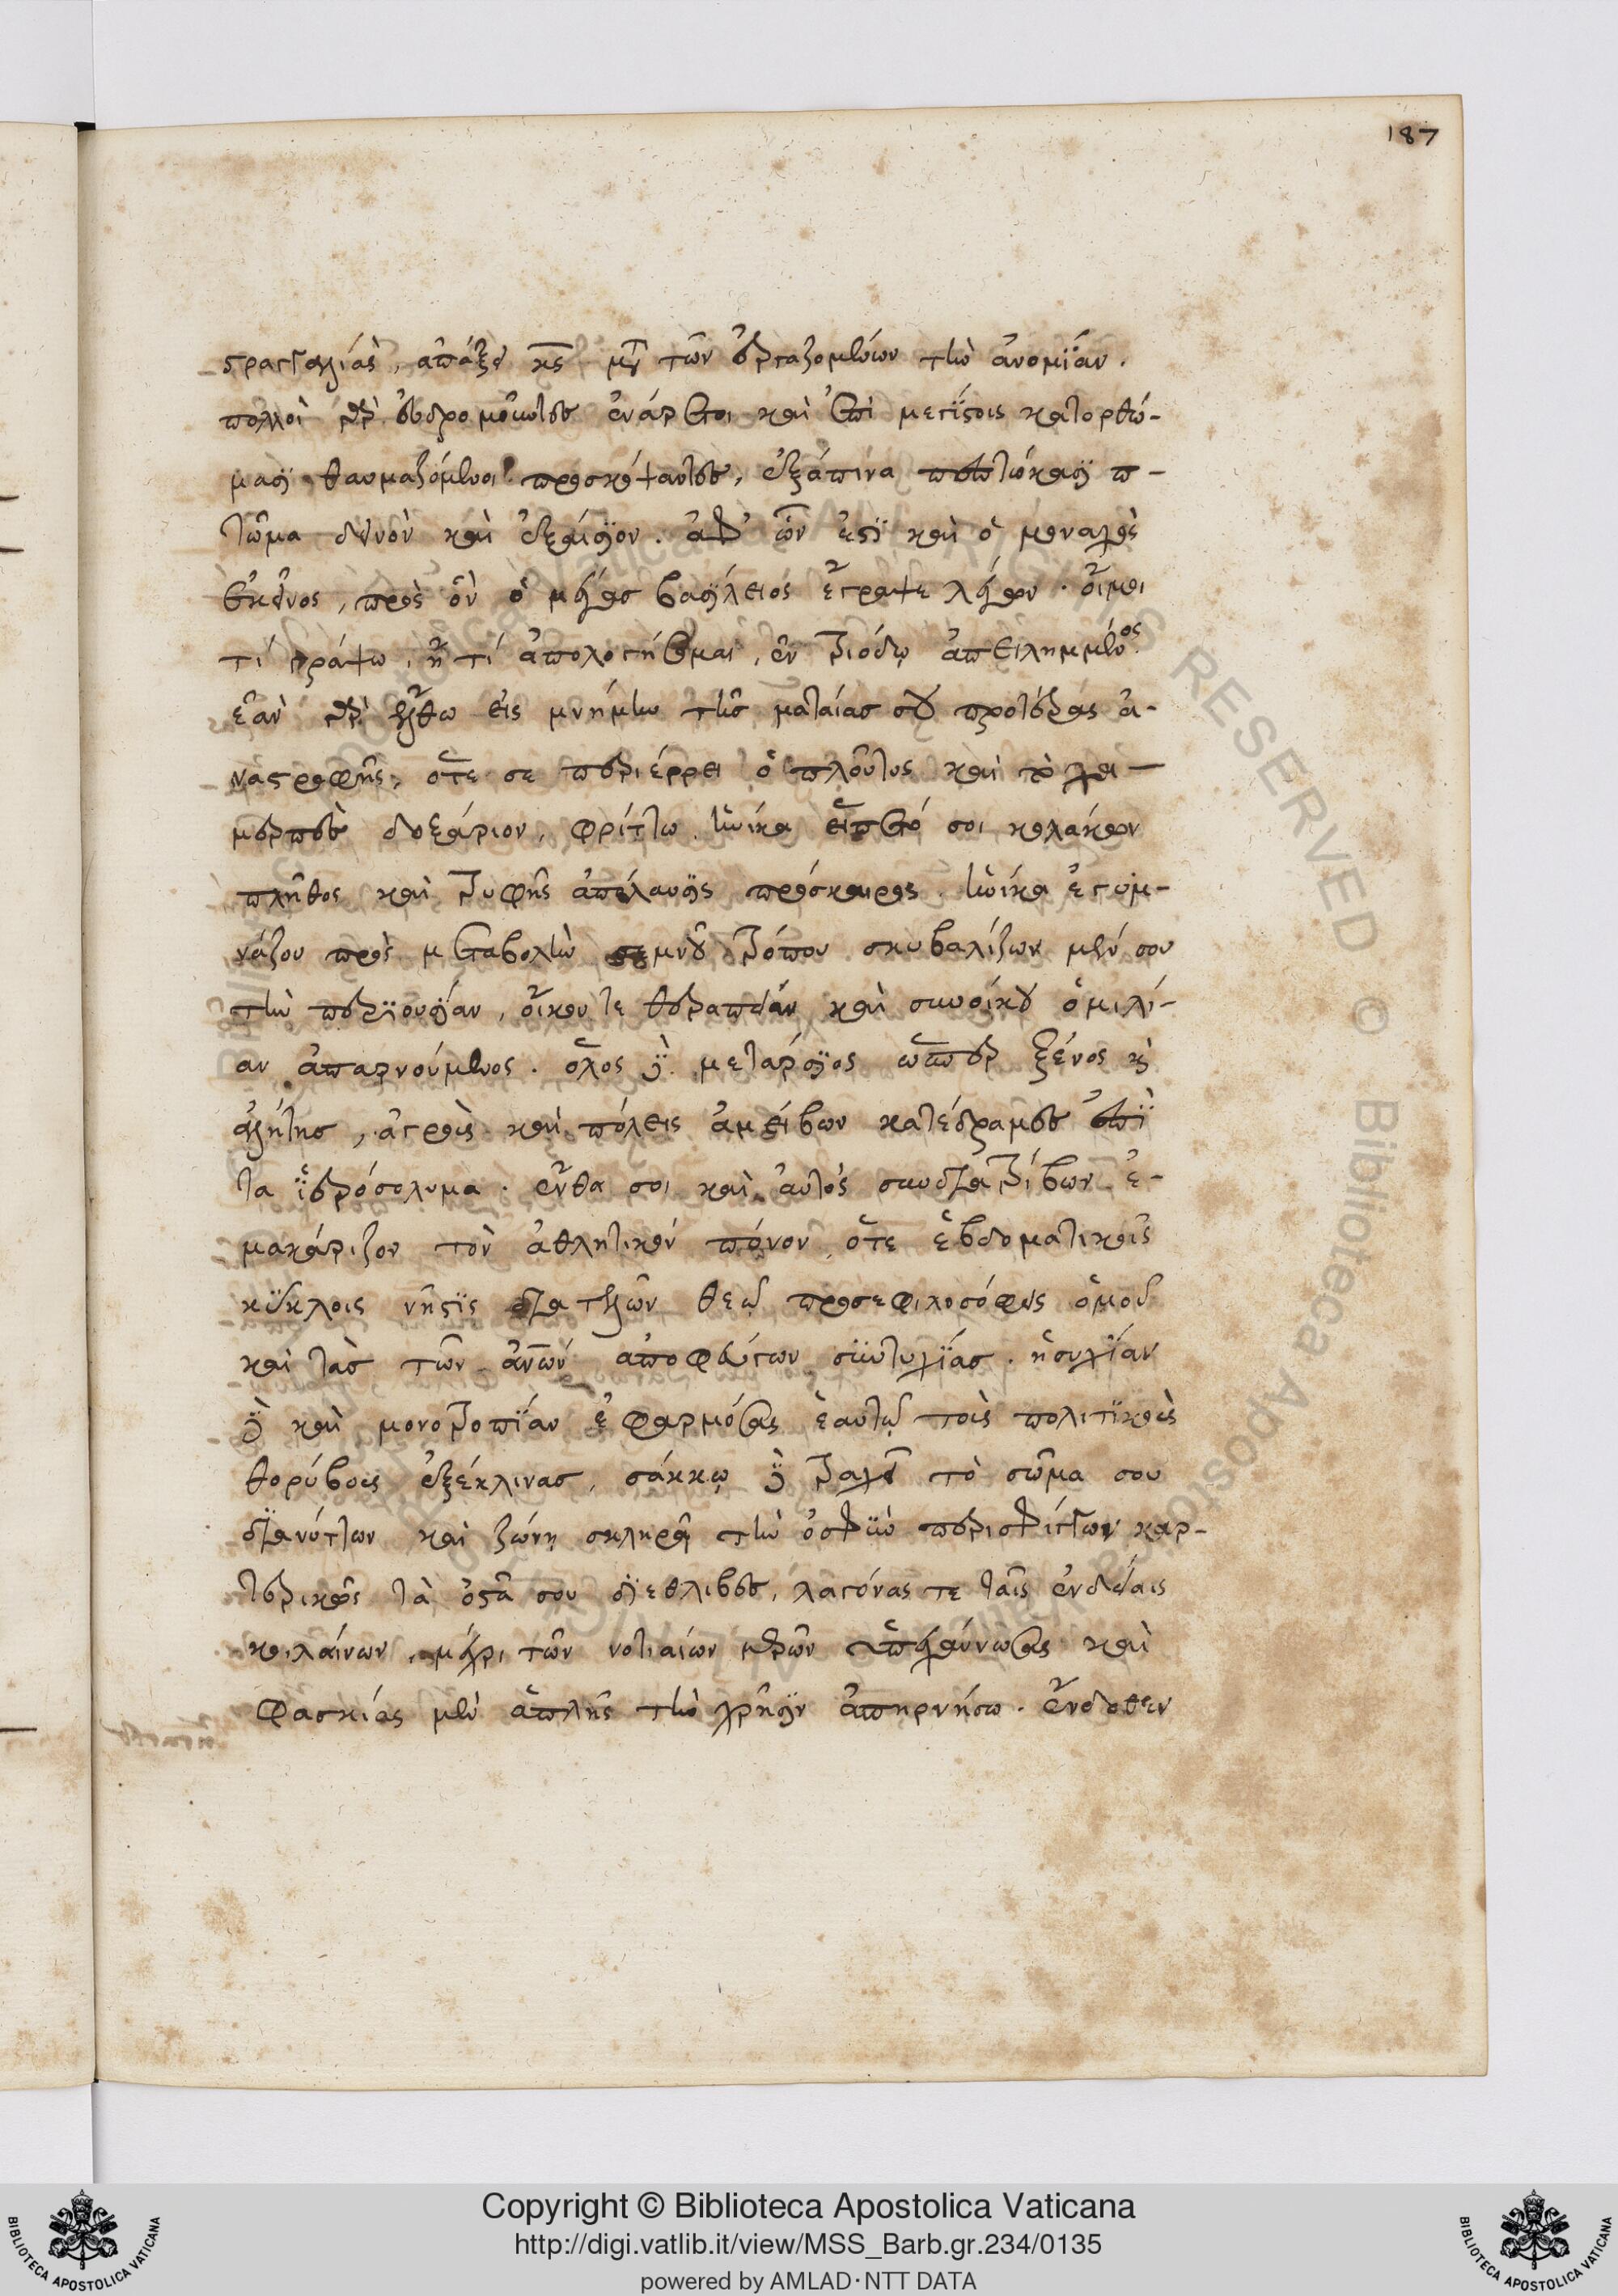 187
στραγγαλιάς, ἀπάξει κς μετὰ τῶν ἐργαζομένων τὴν ἀνομίαν.
πολλοὶ γὰρ εὐδρομοῦντες ἐνάρετοι καὶ ἐπὶ μεγίστοις κατορθώ-
μασι θαυμαζόμενοι προσκόψαντες, ἐξάπινα πεπτώκασι π-
τῶμα δεινὸν καὶ ἐξαίσιον. ἀφ' ὧν ἐστὶ καὶ ὁ μοναχὸς
ἐκεῖνος, πρὸς ὃν ὁ μέγας βασίλειος ἔγραψε λέγων. οἴμοι
τί γράψω, ἢ τί ἀπολογήσομαι, ἐν τριόδῳ ἀπειλημμένος.
ἐὰν γὰρ ἔλθω εἰς μνήμην τῆς ματαίας σου προτέρας ἀ-
ναστροφῆς, ὅτε σε περιέρρει ὁ πλοῦτος καὶ τὸ χα-
μερπὲς δοξάριον, φρίττω, ἡνίκα εἵπετό σοι κολάκων
πλῆθος καὶ τρυφῆς ἀπόλαυσις πρόσκαιρος. ἡνίκα ἐγυμ-
νάζου πρὸς μεταβολὴν σεμνοῦ τρόπου σκυβαλίζων μέν σου
τὴν περιουσίαν, οἴκου τε θεραπείαν καὶ συνοίκου ὁμιλί-
αν ἀπαρνούμενος. ὅλος δὲ μετάρσιος ὥσπερ ξένος καὶ
ἀλήτης, ἀγροὺς καὶ πόλεις ἀμείβων κατέδραμες ἐπὶ
τὰ ἱεροσόλυμα. ἔνθα σοι καὶ αὐτὸς συνδιατρίβων ἐ-
μακάριζον τὸν ἀθλητικὸν πόνον, ὅτε ἑβδοματικοῖς
κύκλοις νῆστις διατελῶν θεῷ προσεφιλοσόφεις ὁμοῦ
καὶ τὰς τῶν ἀνων ἀποφεύγων συντυχίας. ἡσυχίαν
δὲ καὶ μονοτροπίαν ἐφαρμόσας ἑαυτῷ τοὺς πολιτικοὺς
θορύβους ἐξέκλινας, σάκκῳ δὲ τραχεῖ τὸ σῶμα σου
διανύττων καὶ ζώνῃ σκληρᾷ τὴν ὀσφὺν περισφίγγων καρ-
τερικῶς τὰ ὀστᾶ σου διέθλιβες, λαγόνας τε ταῖς ἐνδείαις
κοιλαίνων, μέχρι τῶν νοτιαίων μερῶν ὑπεχαύνωσας καὶ
φασκίας μὲν ἁπλῆς τὴν χρῆσιν ἀπηρνήσω. ἔνδοθεν
Copyright © Biblioteca Apostolica Vaticana
http://digi.vatlib.it/view/MSS_Barb.gr.234/0135
powered by AMLAD·NTT DATA